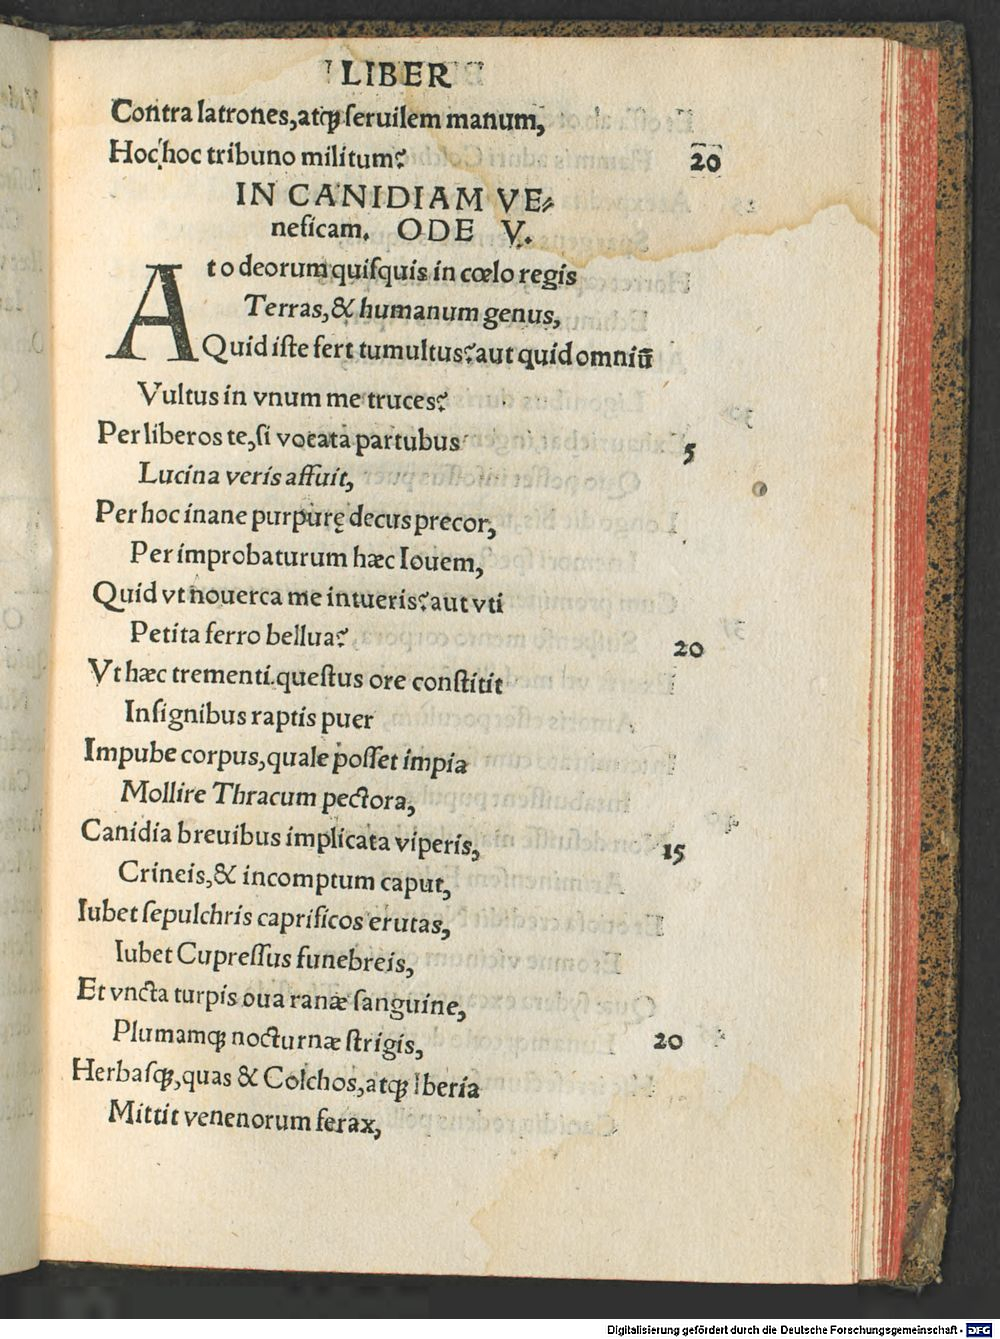 LIBER
Contra latrones, atq; seruilem manum,
Hoc hoc tribuno militum? 20
IN CANIDIAM VE-
neficam. ODE V.
At o deorum quisquis in cœlo regis
Terras, & humanum genus,
Quid iste fert tumultus? aut quid omniū
Vultus in vnum me truces?
Per liberos te, si vocata partubus 5
Lucina veris affuit,
Per hoc inane purpurę decus precor,
Per improbaturum hæc Iouem,
Quid vt nouerca me intueris? aut vti
Petita ferro bellua? 20
Vt hæc trementi questus ore constitit
Insignibus raptis puer
Impube corpus, quale posset impia
Mollire Thracum pectora,
Canidia breuibus implicata viperis, 15
Crineis, & incomptum caput,
Iubet sepulchris caprificos erutas,
Iubet Cupressus funebreis,
Et vncta turpis oua ranæ sanguine,
Plumamq; nocturnæ strigis, 20
Herbasq;, quas & Colchos, atq; Iberia
Mittit venenorum ferax,
Digitalisierung gefördert durch die Deutsche Forschungsgemeinschaft - DFG